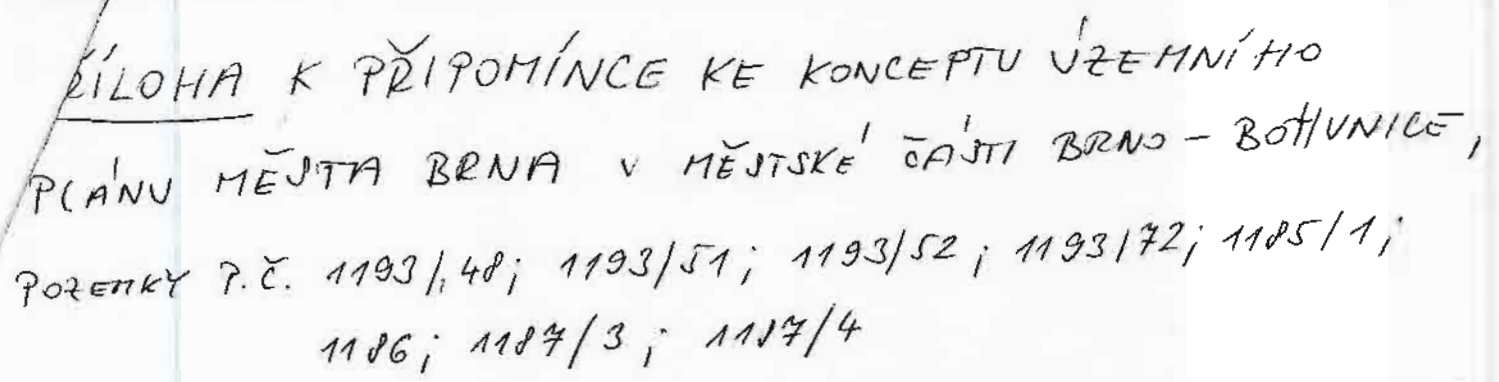 ŘÍLOHA K PŘIPOMÍNCE KE KONCEPTU ÚZEMNÍHO
PLÁNU MĚSTA BRNA V MĚSTSKÉ ČÁSTI BRNO - BOHUNICE,
POZEMKY P.Č. 1193/48; 1193/51; 1193/52; 1193/72; 1185/1;
1186; 1187/3; 1187/4